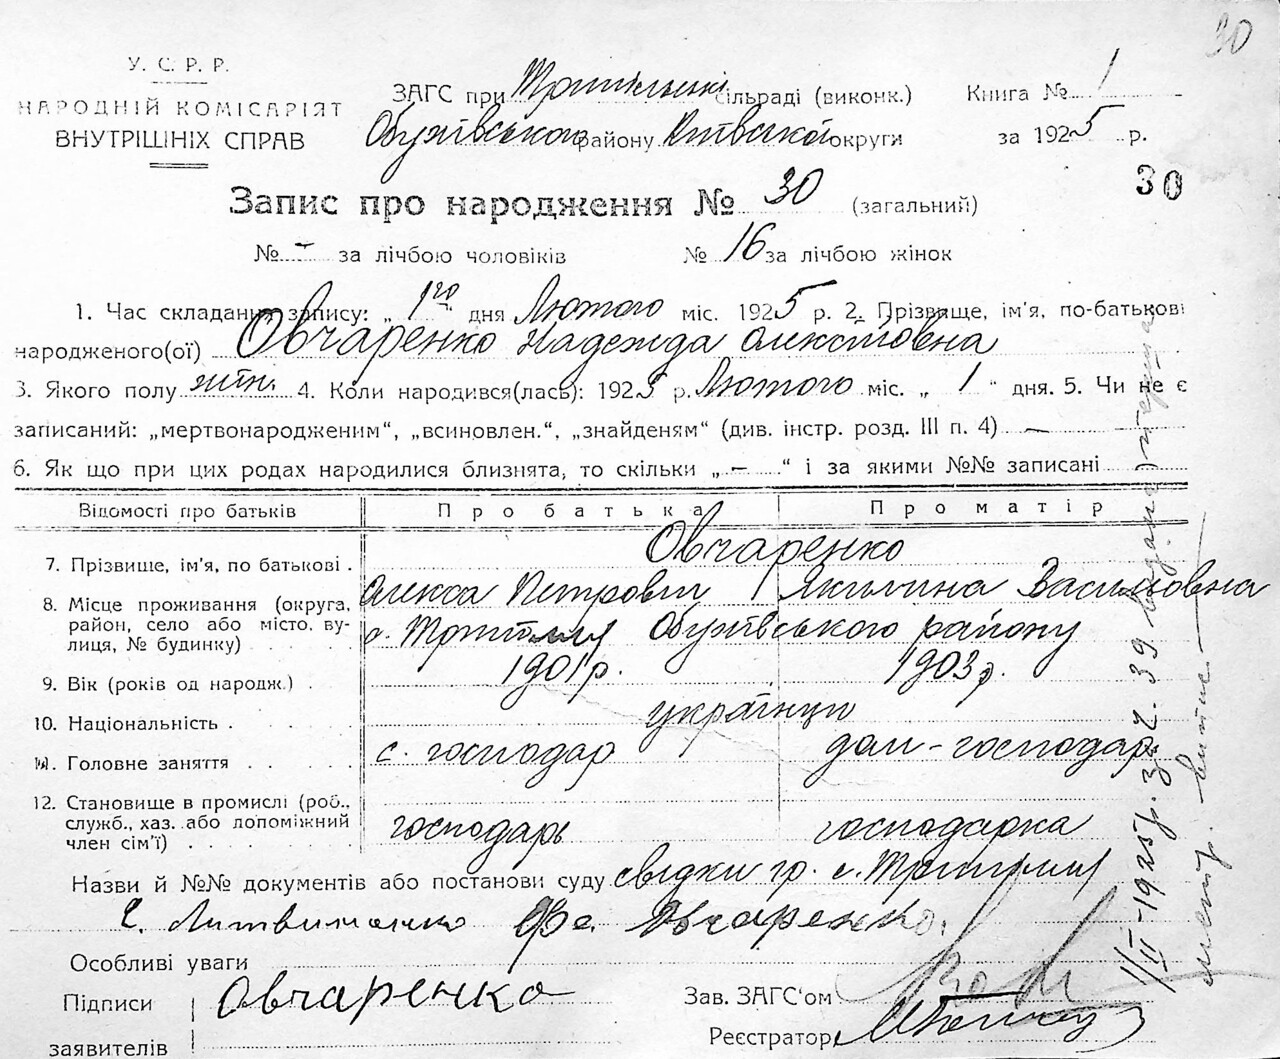 30
У. С. Р. Р.
НАРОДНІЙ КОМІСАРІЯТ
ВНУТРІШНІХ СПРАВ
ЗАГС при Трипільські сільраді (виконк.)
Обухівського району Київської округи
Книга № 1
за 1925 р.
30
Запис про народження № 30 (загальний)
№ – за лічбою чоловіків № 16 за лічбою жінок
1. Час складання запису: „ 1го " дня Лютого міс. 1925 р. 2. Прізвище, ім'я, по-батькові
народженого(ої) Овчаренко Надежда Олексіївна
3. Якого полу жін. 4. Коли народився(лась): 1925 р. Лютого міс. „ 1 " дня. 5. Чи не є
записаний: „мертвонародженим", „всиновлен.", „знайденям" (див. інстр. розд. III п. 4) —
6. Як що при цих родах народилися близнята, то скільки „ – " і за якими №№ записані
Відомості про батьків Про батька Про матір
7. Прізвище, ім'я, по батькові . Овчаренко
Олекса Петрович Якилина Василівна
8. Місце проживання (округа, район, село або місто, вулиця, № будинку) с. Трипілля Обухівського району
9. Вік (років од народж.) . 1901 р. 1903 р.
10. Національність . українци
11. Головне заняття с. господар дом-господар.
12. Становище в промислі (роб., служб., хаз. або допоміжний член сім'ї) господарь господарка
Назви й №№ документів або постанови суду свідки гр. с. Трипілля
Є. Литвиненко Овчаренко.
Особливі уваги
Підписи заявителів Овчаренко
Зав. ЗАГС'ом
Реєстратор
1/II-1925 р. за ч. 39 видано
метр. випис